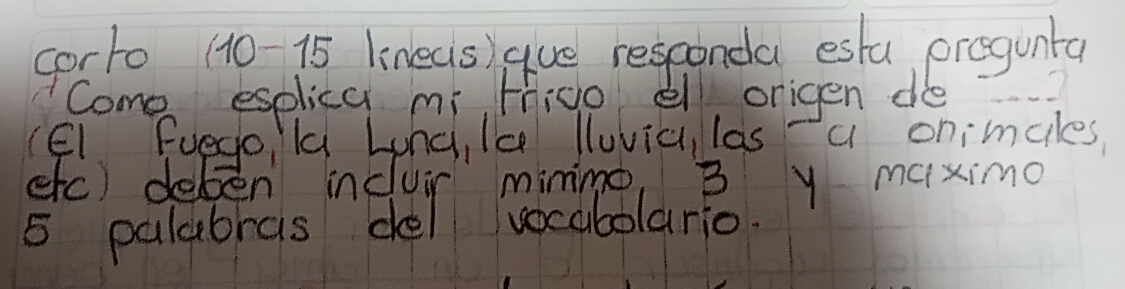 corto (10-15 lineas) que responda esta pregunta
¿Como esplica mi trivo el origen de ....?
(El fuego, la Luna, la lluvia, las a animales,
etc) deben incluir minimo, 3 y maximo
5 palabras del vocabolario.